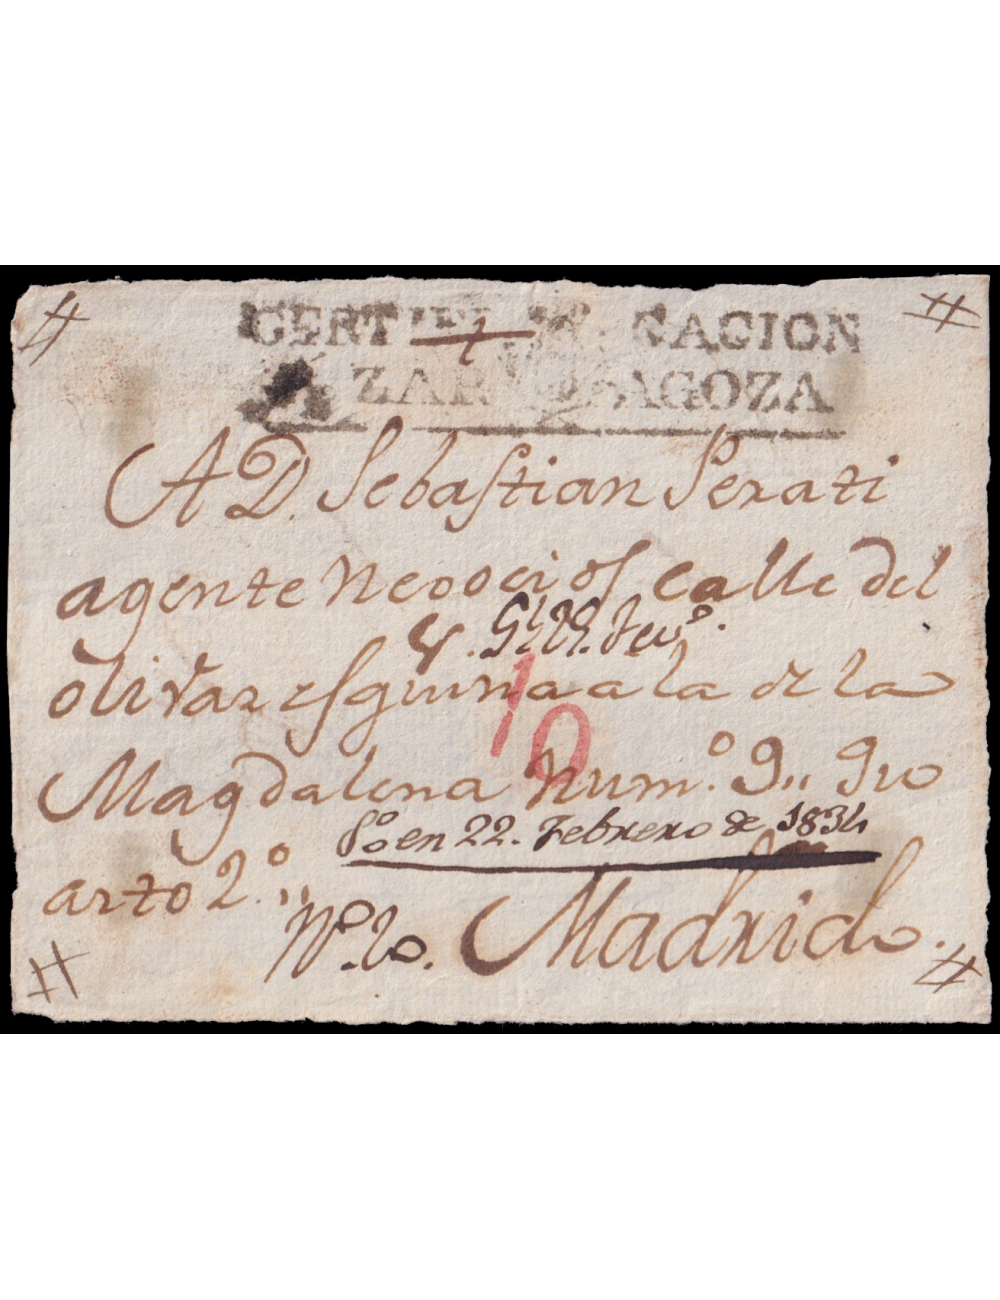 CERTIFICACION
ZARAGOZA
A D. Sebastian Perati
agente Negocios calle del
olivar esquina a la de la
10
Magdalena Num.º 9,, 9uo
Po en 22. Febrero de 1834
arto 2.º,,
Madrid.